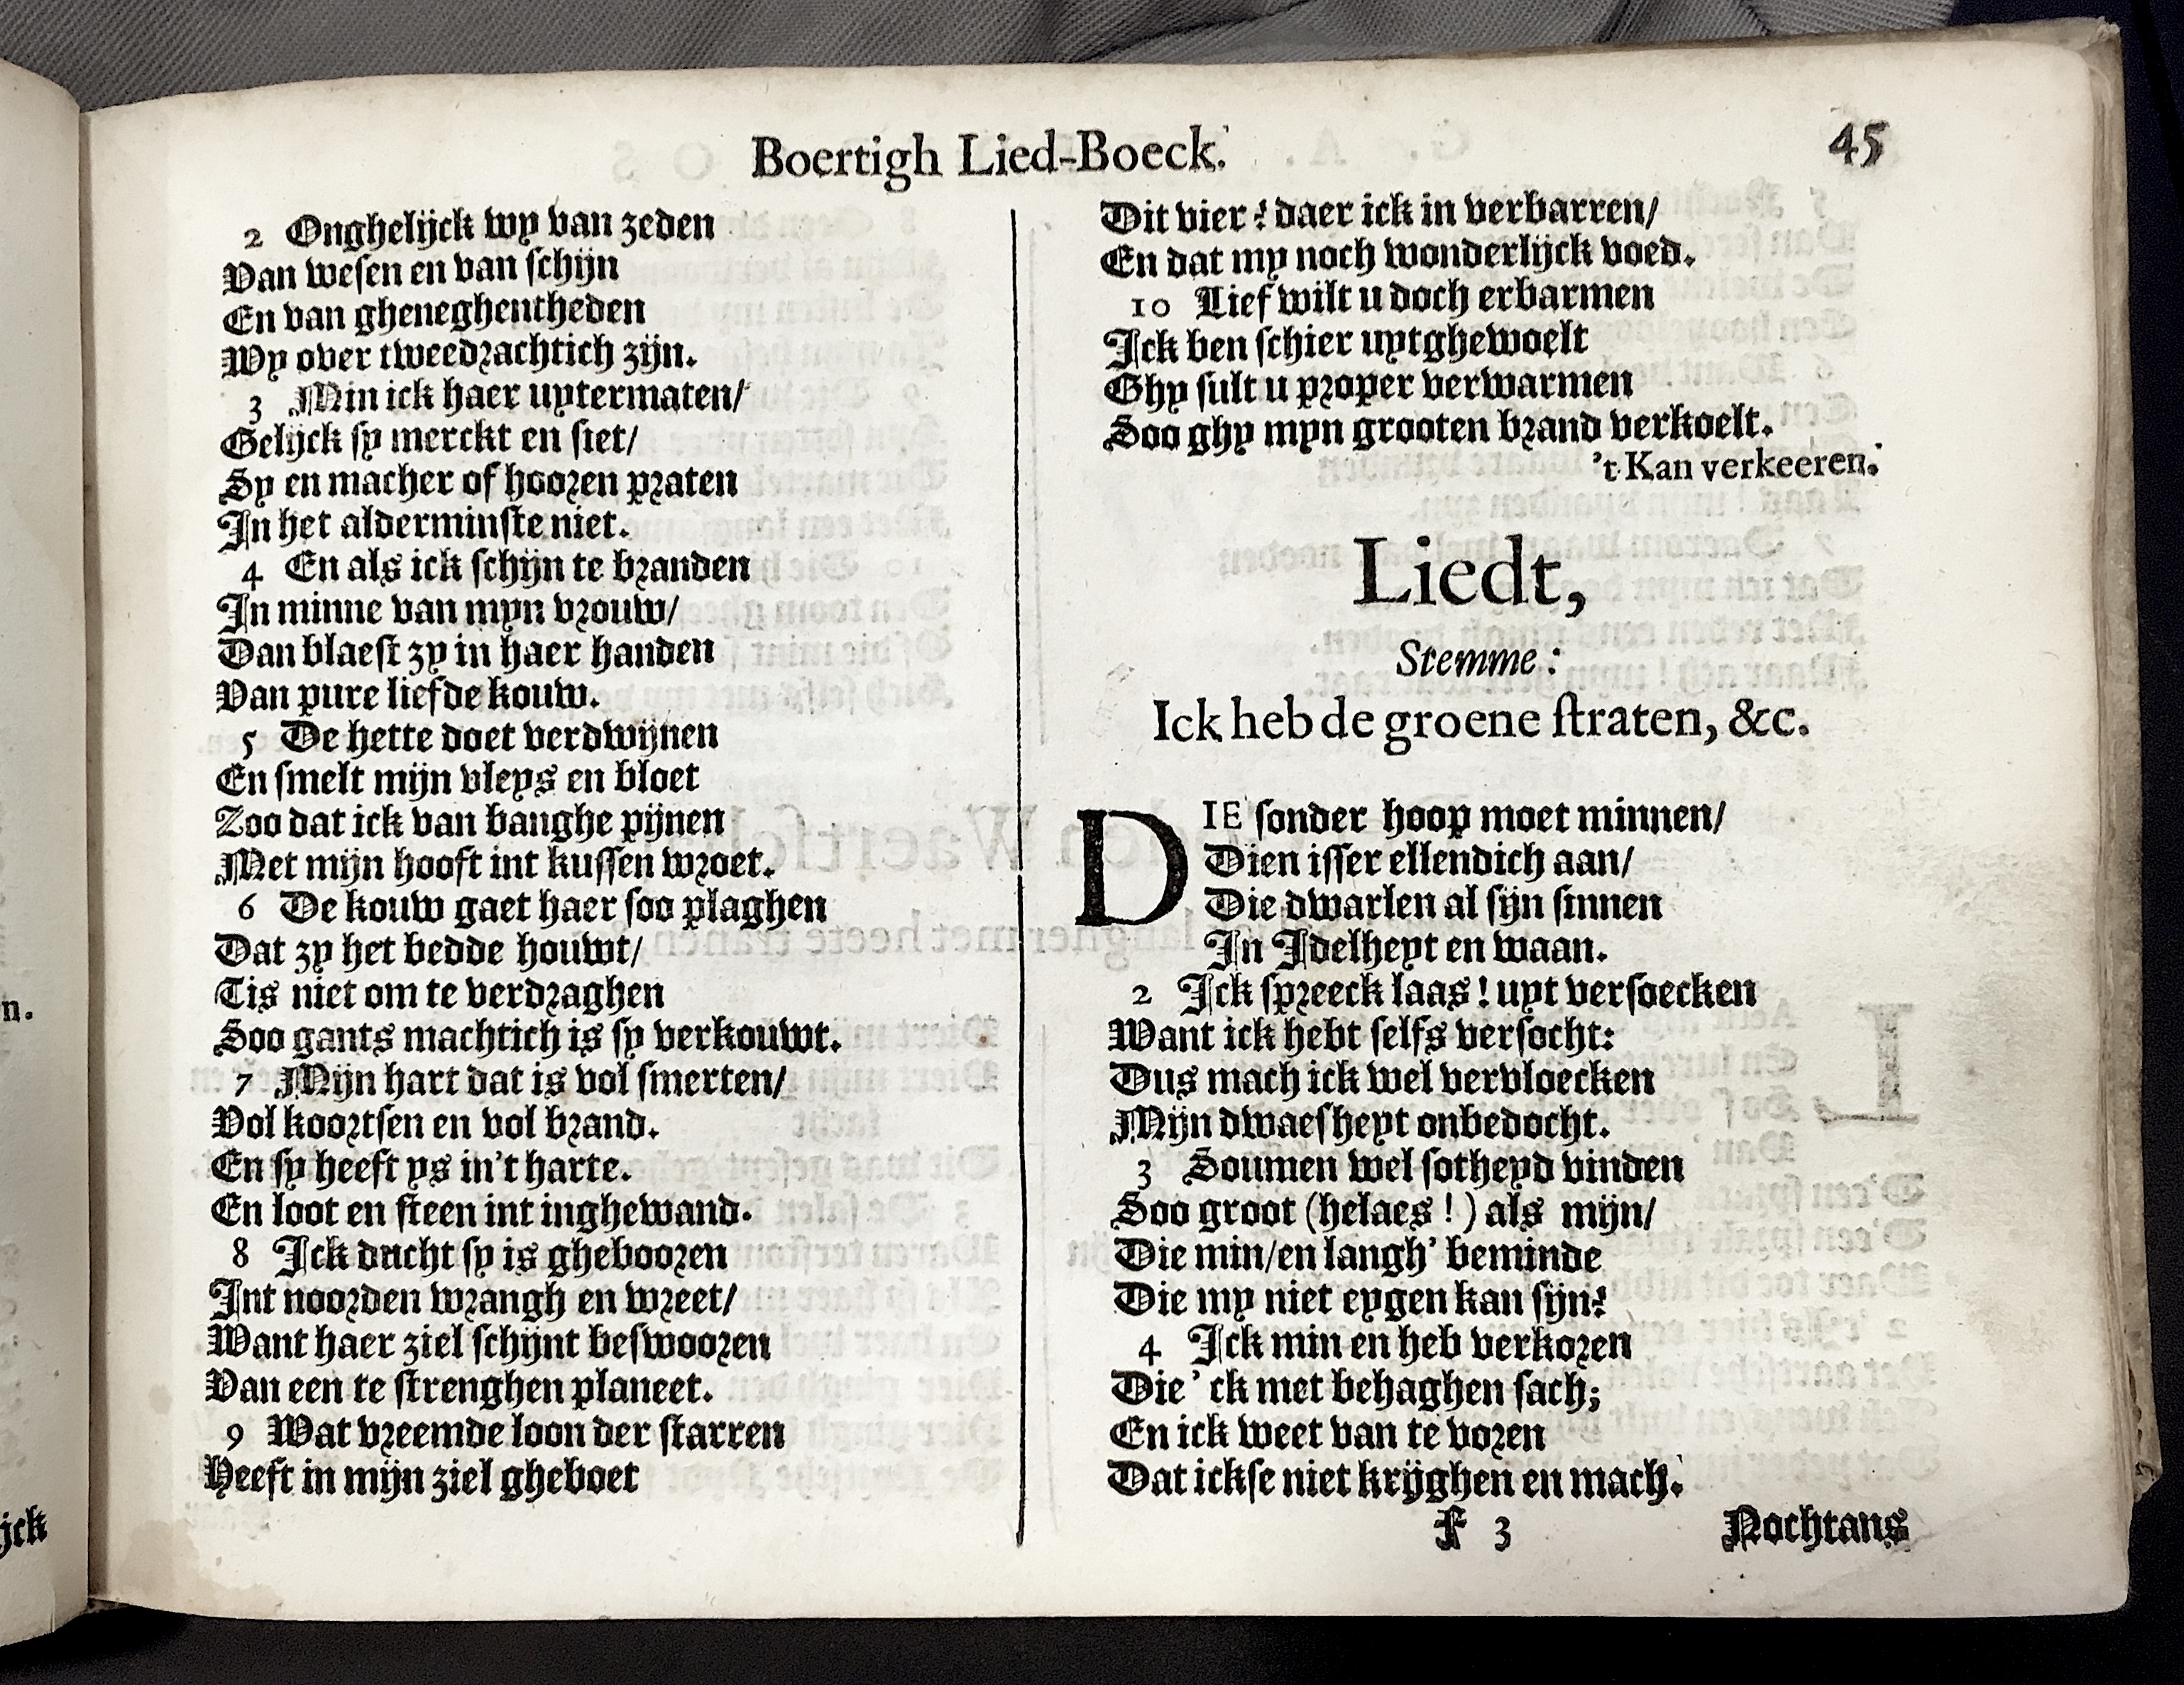 Boertigh Lied-Boeck. 45
2 Onghelijck wy van zeden
Van wesen en van schijn
En van gheneghentheden
Wy over tweedrachtich zijn.
3 Min ick haer uytermaten/
Gelijck sy merckt en siet/
Sy en macher of hooren praten
In het alderminste niet.
4 En als ick schijn te branden
In minne van myn vrouw/
Dan blaest zy in haer handen
Van pure liefde kouw.
5 De hette doet verdwijnen
En smelt mijn vleys en bloet
Zoo dat ick van banghe pijnen
Met mijn hooft int kussen wroet.
6 De kouw gaet haer soo plaghen
Dat zy het bedde houwt/
Tis niet om te verdraghen
Soo gants machtich is sy verkouwt.
7 Mijn hart dat is vol smerten/
Vol koortsen en vol brand.
En sy heeft ys in't harte.
En loot en steen int inghewand.
8 Ick ducht sy is ghebooren
Int noorden wrangh en wreet/
Want haer ziel schijnt beswooren
Van een te strenghen planeet.
9 Wat vreemde loon der starren
Heeft in mijn ziel gheboet
Dit vier? daer ick in verbarren/
En dat my noch wonderlijck voed.
10 Lief wilt u doch erbarmen
Ick ben schier uytghewoelt
Ghy sult u proper verwarmen
Soo ghy myn grooten brand verkoelt.
't Kan verkeeren.
Liedt,
Stemme:
Ick heb de groene straten, &c.
DIE sonder hoop moet minnen/
Dien isser ellendich aan/
Die dwarlen al sijn sinnen
In Idelheyt en waan.
2 Ick spreeck laas! uyt versoecken
Want ick hebt selfs versocht:
Dus mach ick wel vervloecken
Mijn dwaesheyt onbedocht.
3 Soumen wel sotheyd vinden
Soo groot (helaes!) als mijn/
Die min/en langh' beminde
Die my niet eygen kan sijn?
4 Ick min en heb verkoren
Die' ck met behaghen sach;
En ick weet van te voren
Dat ickse niet krijghen en mach.
F 3 Nochtans
n.
jck